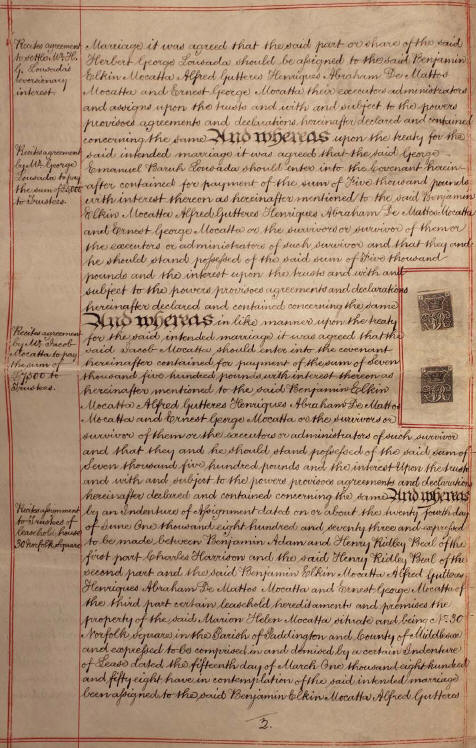 Recites agreement
to settle Mr H.
G. Lousada's
reversionary
interest.
Marriage it was agreed that the said part or share of the said
Herbert George Lousada should be assigned to the said Benjamin
Elkin Mocatta Alfred Gutteres Henriques Abraham De Mattos
Mocatta and Ernest George Mocatta their executors administrators
and assigns upon the trusts and with and subject to the powers
provisoes agreements and declarations hereinafter declared and contained
concerning the same And whereas upon the treaty for the
Recites agreement
by Mr George
Lousada to pay
the sum of £5000
to Trustees.
said intended marriage it was agreed that the said George
Emanuel Baruh Lousada should enter into the Covenant herein-
after contained for payment of the sum of Five thousand pounds
with interest thereon as hereinafter mentioned to the said Benjamin
Elkin Mocatta Alfred Gutteres Henriques Abraham De Mattos Mocatta
and Ernest George Mocatta or the survivors or survivor of them or
the executors or administrators of such survivor and that they and
he should stand possessed of the said sum of Five thousand
pounds and the interest upon the trusts and with and
subject to the powers provisoes agreements and declarations
hereinafter declared and contained concerning the same
And whereas in like manner upon the treaty
Recites agreement
by Mr Jacob
Mocatta to pay
the sum of
£7500 to
Trustees.
for the said intended marriage it was agreed that the
said Jacob Mocatta should enter into the covenant
hereinafter contained for payment of the sum of Seven
thousand five hundred pounds with interest thereon as
hereinafter mentioned to the said Benjamin Elkin
Mocatta Alfred Gutteres Henriques Abraham De Mattos
Mocatta and Ernest George Mocatta or the survivors or
survivor of them or the executors or administrators of such survivor
and that they and he should stand possessed of the said sum of
Seven thousand five hundred pounds and the interest upon the trusts
and with and subject to the powers provisoes agreements and declarations
hereinafter declared and contained concerning the same And whereas
Recites assignment
to Trustees of
leasehold house
30 Norfolk Square
by an Indenture of assignment dated on or about the twenty fourth day
of June One thousand eight hundred and seventy three and expressed
to be made between Benjamin Adam and Henry Ridley Beal of the
first part Charles Harrison and the said Henry Ridley Beal of the
second part and the said Benjamin Elkin Mocatta Alfred Gutteres
Henriques Abraham De Mattos Mocatta and Ernest George Mocatta of
the third part certain leasehold hereditaments and premises the
property of the said Marion Helen Mocatta situate and being No 30
Norfolk Square in the Parish of Paddington and County of Middlesex
and expressed to be comprised in and demised by a certain Indenture
of Lease dated the fifteenth day of March One thousand eight hundred
and fifty eight have in contemplation of the said intended marriage
been assigned to the said Benjamin Elkin Mocatta Alfred Gutteres
2.